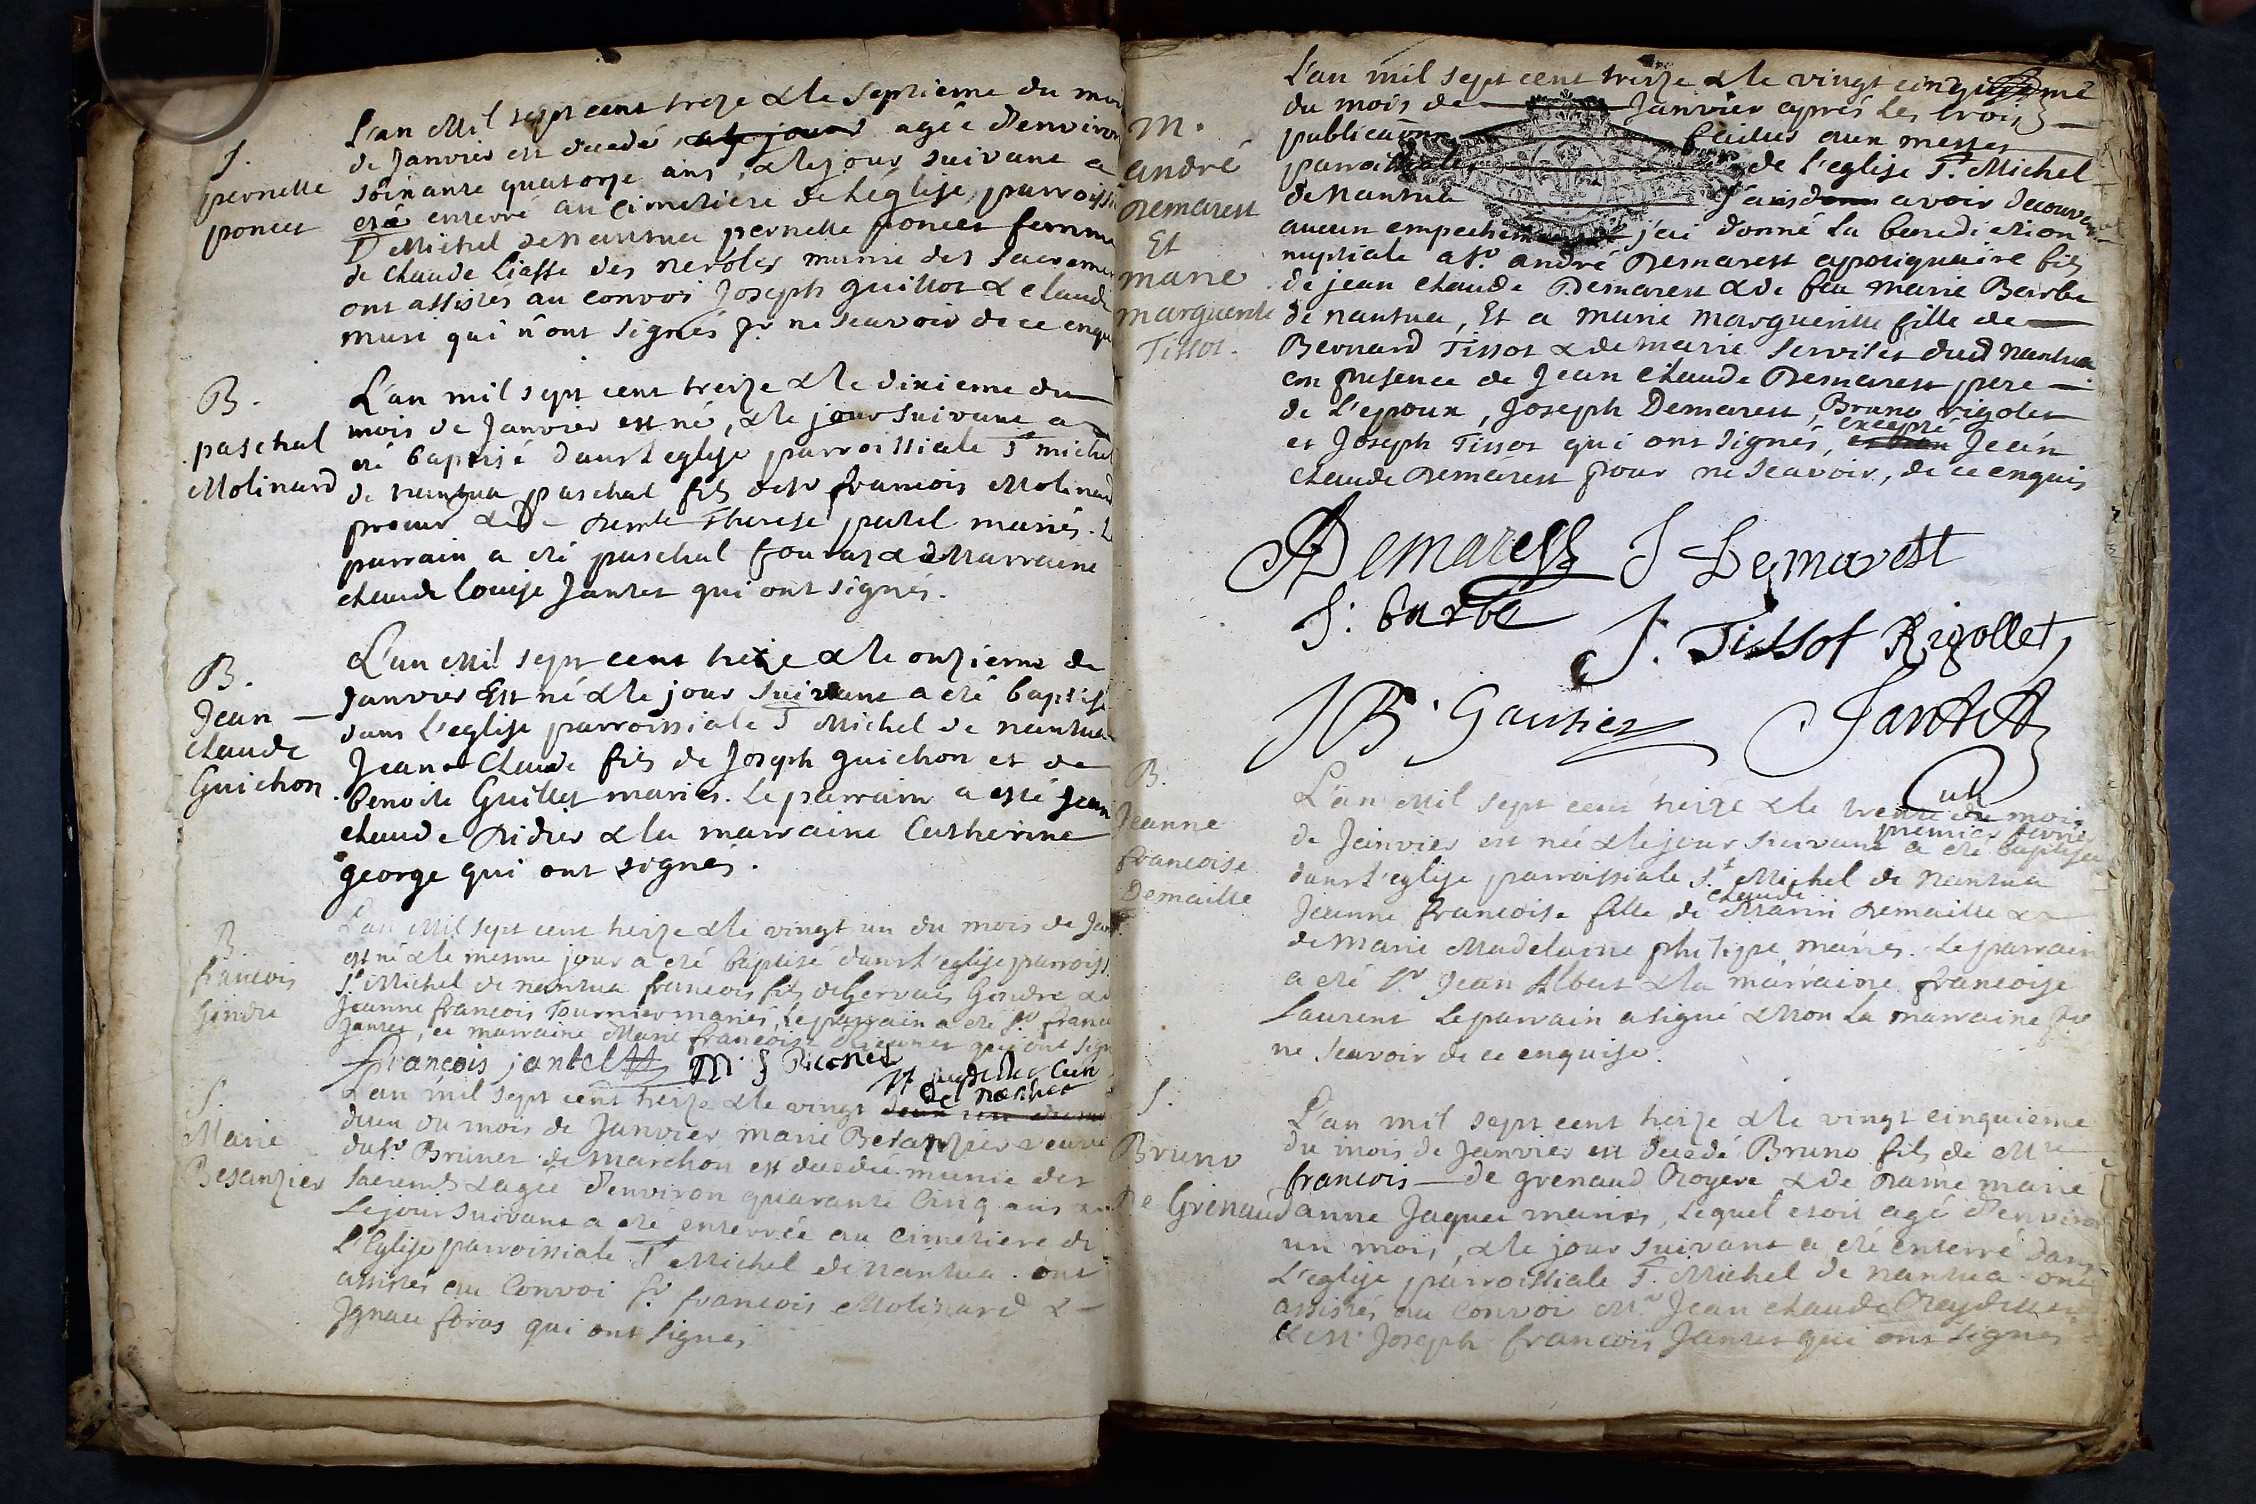 S.
pernette
poncet
L'an Mil sept cent treze & le septieme du moi
de Janvier est decedé, agée d'environ
soixante quatorze ans, & le jour suivant a
eté enterré au cimetiere de L'église parroissi
St Michel de Nantua pernette poncet femme
de Claude Liasse des neroles munie des Sacremen
ont assistés au convoi Joseph guillot & Claude
musi qui n'ont signés pr ne scavoir de ce enqu
B.
paschal
Molinard
L'an mil sept cent treize & le dixieme du
mois de Janvier est né, & le jour suivant a
eté baptisé dans L'eglise parroissiale St michel
de nantua paschal fils de Sr francois Molinard
procur & de Demlle Therese patel mariés. L
parrain a eté paschal fouras & Marraine
claude Louise Jantet qui ont signés.
B.
Jean
Claude
Guichon
L'an Mil sept cent treize & le onzieme de
Janvier Est né & le jour suivant a eté baptisé
dans L'eglise parroissiale St Michel de nantua
Jean Claude fils de Joseph guichon et de
benoite Guillet mariés. Le parrain a esté Jean
claude Didier & la marraine Catherine
george qui ont signés.
B
francois
Gindre
L'an Mil sept cent treize & le vingt un du mois de Jan
est né & le mesme jour a eté baptisé dans L'eglise parroiss
St Michel de nantua francois fils de Gervais Gindre &
Jeanne francois Tournier mariés, le parrain a eté Sr franco
Jantet, et marraine Marie francoise qui ont sign
francois jantet M. J
de nantua
S.
Marie
Besanzier
L'an mil sept cent treize & le vingt
deux du mois de Janvier marie Besanzier veuve
du Sr Brunet de marchon est decedée munie des
sacremts & agée d'environ quarante Cinq ans &
Le jour suivant a eté enterrée au cimetiere de
L'Eglise parroissiale St Michel de Nantua. ont
assistés au Convoi Sr francois Molinard &
Ignace foras qui ont signés
M.
andré
Demarest
Et
marie
marguerite
Tissot.
L'an mil sept cent treize & le vingt cinquieme
du mois de Janvier aprés les trois
publications faites aux messes
parroissiales de l'eglise St. Michel
de Nantua sans avoir decouvert
aucun empechement j'ai donné la benediction
nuptiale a Sr. andré Demarest apotiquaire fils
de jean claude Demarest & de feu marie Barbe
de nantua, Et a marie marguerite fille de
Bernard Tissot & de marie Servilet dud Nantua
en presence de Jean Claude Demarest pere
de L'epoux, Joseph Demarest, Bruno rigolet
et Joseph Tissot qui ont signés, excepté Jean
claude Demarest pour ne scavoir, de ce enquis
ADemarest J Demarest
J. barbe
J. Tissot Rigollet
JB. Gautier Jantet
B.
Jeanne
francoise
Demaille
L'an Mil sept cent treize & le trente un du mois
de Janvier est née & le jour suivant premier fevrier a eté baptisée
dans L'eglise parroissiale St Michel de Nantua
Jeanne francoise fille de claude Marin Demaille &
de Marie Madelaine philippe mariés. Le parrain
a eté Sr Jean Albert & la marraine francoise
Laurent Le parrain a signé & non la marraine pr
ne scavoir de ce enquise.
S.
Bruno
De Grenaud
L'an mil sept cent treize & le vingt cinquieme
du mois de Janvier est decedé Bruno fils de Mre
francois de grenaud Royere & de Dame marie
anne Jaquet mariés, Lequel etoit agé d'environ
un mois, & le jour suivant a eté enterré dans
L'eglise parroissiale St. Michel de nantua ont
assistés au convoi Mr Jean claude
& Mr Joseph francois Jantet qui ont signés